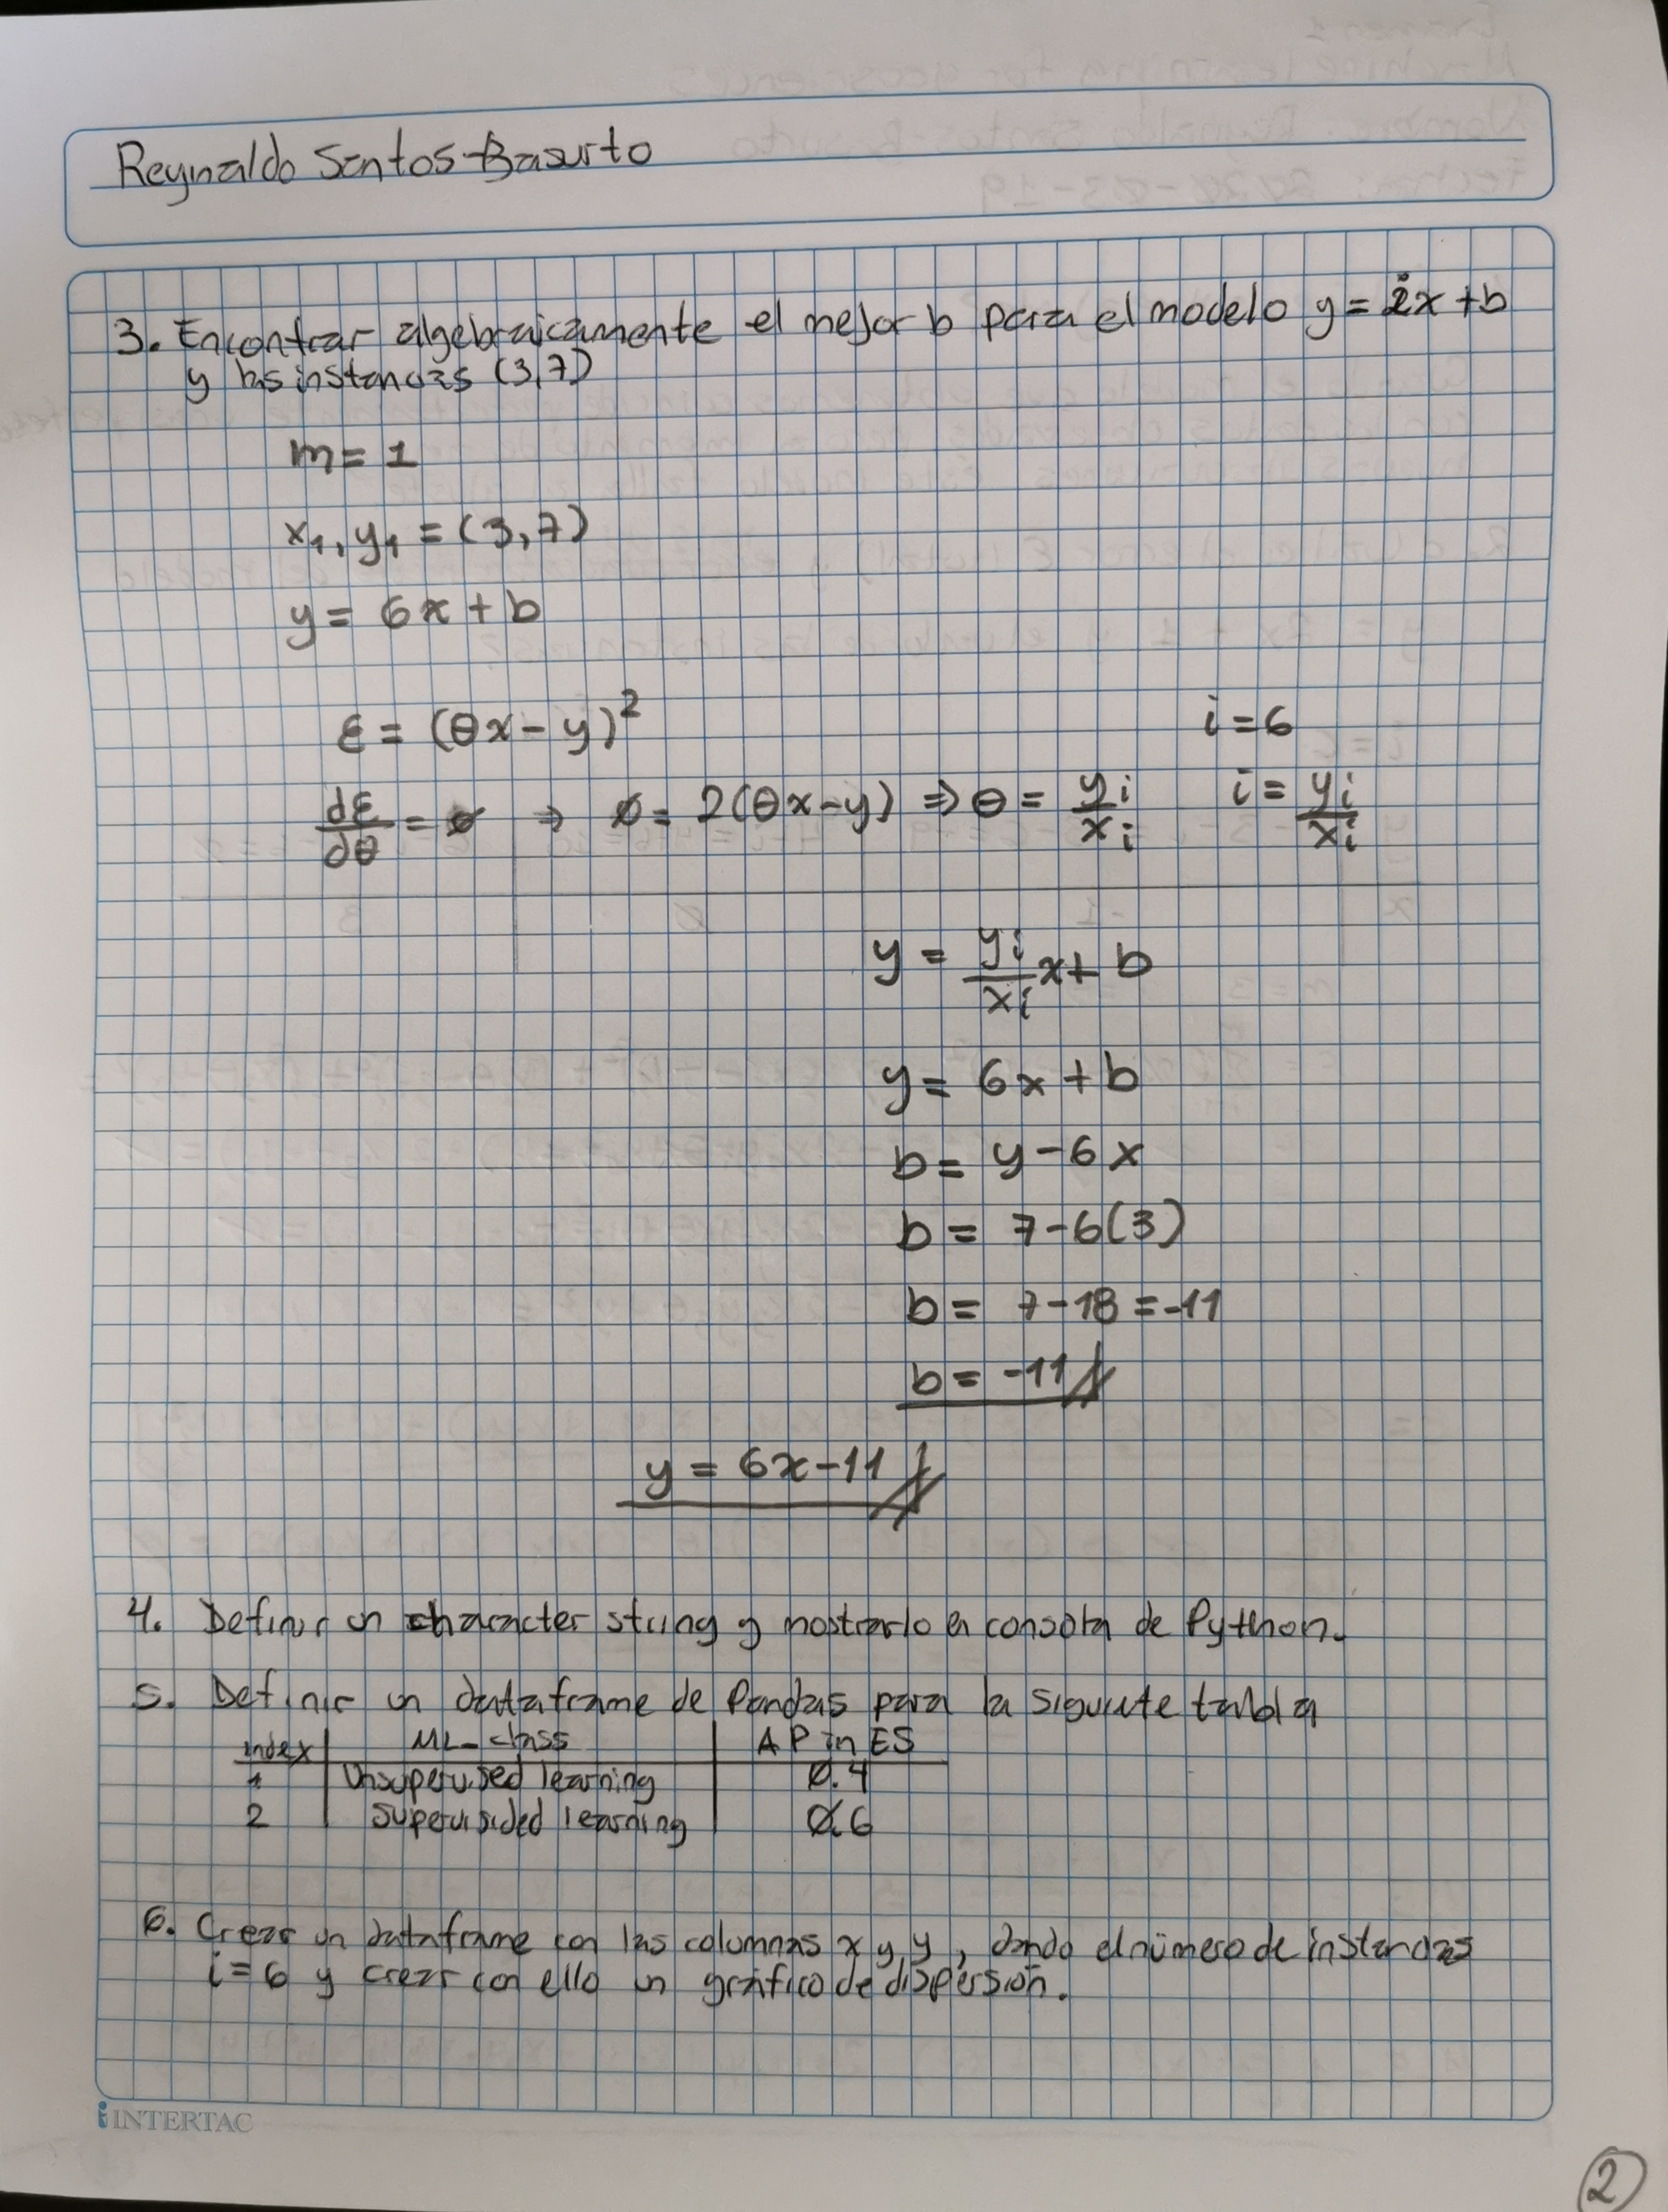 Reynaldo Santos-Basurto
3. Encontrar algebraicamente el mejor b para el modelo y = ix + b
y las instancias (3,7)
m = 1
x₁, y₁ = (3,7)
y = 6x + b
ε = (θx - y)² i = 6
dε/dθ = ø ⇒ ø = 2(θx - y) ⇒ θ = yi/xi i = yi/xi
y = yi/xi x + b
y = 6x + b
b = y - 6x
b = 7 - 6(3)
b = 7 - 18 = -11
b = -11
y = 6x - 11
4. Definir un character string y mostrarlo en consola de Python.
5. Definir un dataframe de Pandas para la siguiente tabla
index ML_class AP in ES
1 Unsupervised learning 0.4
2 Supervisided learning 0.6
6. Crear un dataframe con las columnas x y y, dando el número de instancias
i = 6 y crear con ello un gráfico de dispersión.
INTERTAC
2